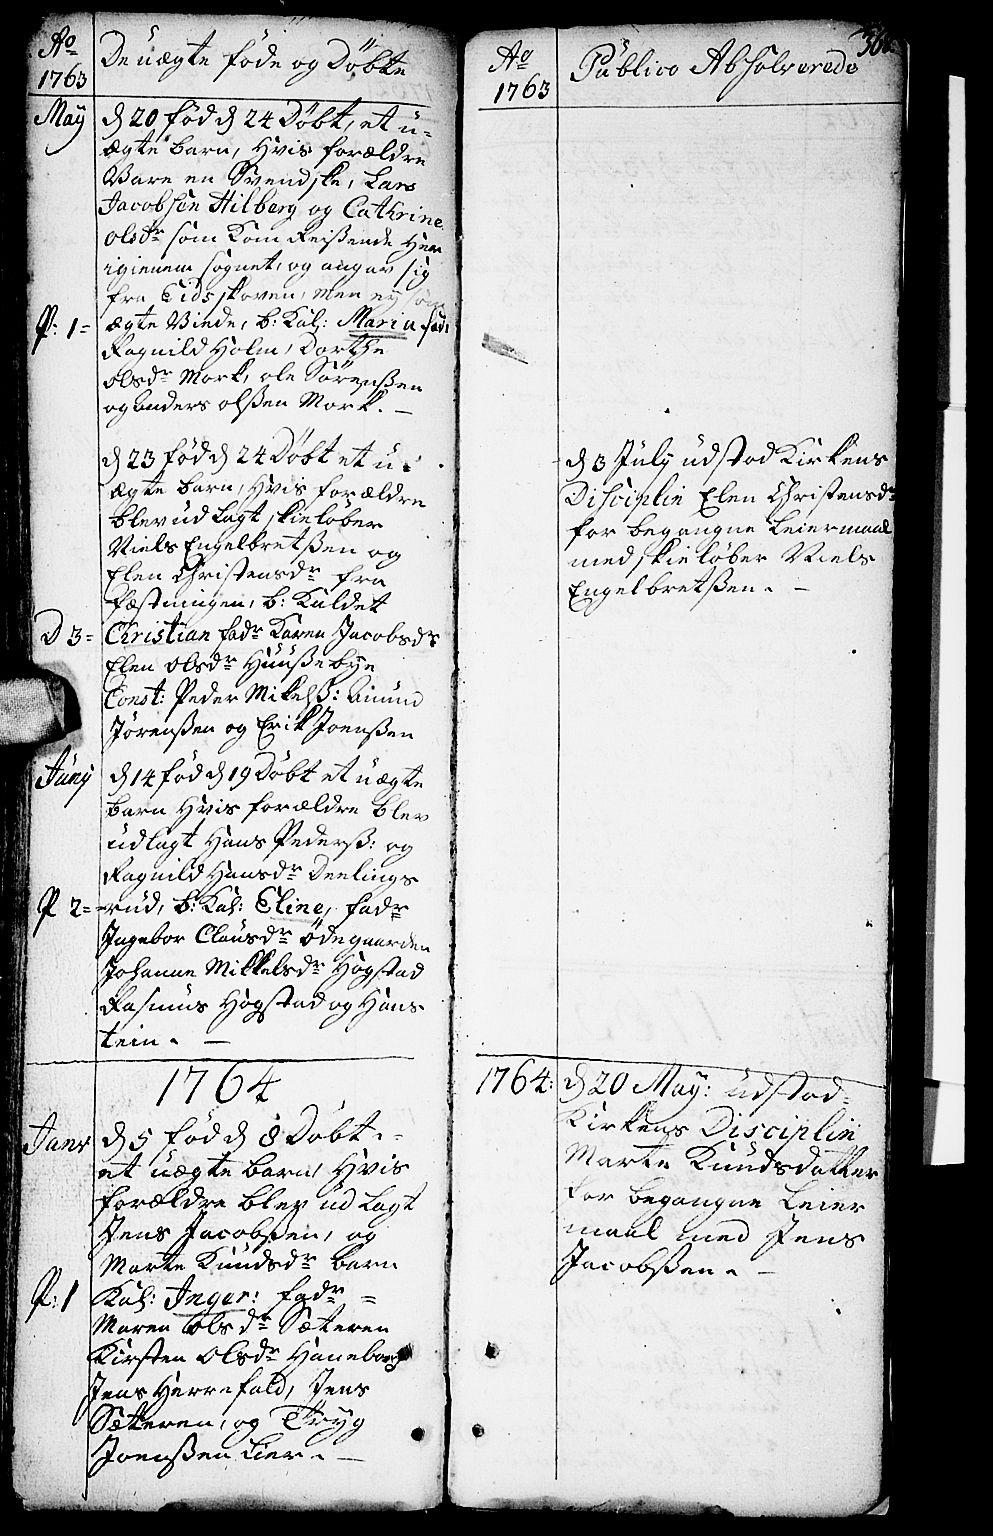 Ao
1763
De uægte føde og Døbte
May
d 20 fød d 24 Døbt, et u-
ægte barn, hvis forældre
Vare en Svendske, Lars
Jacobsen Hilberg og Cathrine
olsdr som kom Reisende her
igienem sognet, og angav sig
fra Eidsskoven, men ey som
P: 1=
ægte Viede, b: Kal: Maria fad:
Ragnild Holm, Dorthe
olsdr Mork, ole Sørensen
og anders olsen Mork. —
d 23 fød d 24 Døbt et u-
ægte barn, hvis forældre
blev udlagt skieløber
Niels Engelbretsen og
Elen Christensdr fra
fæstningen, b: Kaldet
D 3=
Christian fadr Karen Jacobsdr
Elen olsdr Huusebye
Const: Peder Mikelss: Amund
Jørensen og Erik Joensen
Juny
d 14 fød d 19 Døbt et uægte
barn hvis forældre blev
udlagt Hans Peders: og
Ragnild Hansdr Deelings
P 2=
-rud, b: Kal: Eline, fadr
Ingebor Clausdr ødegaarden
Johanne Mikkelsdr Høgstad
Rasmus Høgstad og Hans
tein. —
1764
Janr
d 5 fød d 8 Døbt -
et uægte barn, hvis
forældre blev udlagt
Jens Jacobsen, og
Marte Knudsdr barn
P: 1
Kal: Inger: fadr =
Maren olsdr Sæteren
Kirsten olsdr Haneborg
Jens Herrefald, Jens
Sæteren, og Tryg
Joensen Lier. —
Ao
1763
Publico Absolverede
d 3 July udstod Kirkens
Disciplin Elen Christensdr
for begangne Leiermaal
med skieløber Niels
Engelbretsen. —
1764:
d 20 May: udstod
Kirkens Disciplin
Marte Knudsdatter
for begangne Leier
maal med Jens
Jacobsen. —